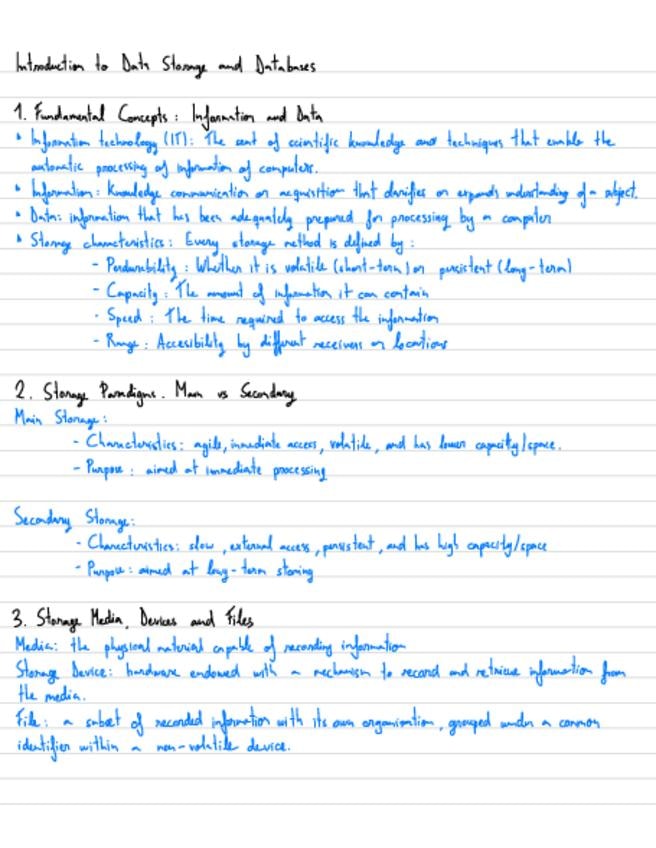 Introduction to Data Storage and Databases
1. Fundamental Concepts: Information and Data
• Information technology (IT): The set of scientific knowledge and techniques that enable the
automatic processing of information of computers.
• Information: Knowledge communication or acquisition that clarifies or expands understanding of a subject.
• Data: information that has been adequately prepared for processing by a computer
• Storage characteristics: Every storage method is defined by:
- Perdurability: Whether it is volatile (short-term) or persistent (long-term)
- Capacity: The amount of information it can contain
- Speed: The time required to access the information
- Range: Accesibility by different receivers or locations
2. Storage Paradigms. Main vs Secondary
Main Storage:
- Characteristics: agile, inmediate access, volatile, and has lower capacity/space.
- Purpose: aimed at immediate processing
Secondary Storage:
- Characteristics: slow, external access, persistent, and has high capacity/space
- Purpose: aimed at long-term storing
3. Storage Media, Devices and Files
Media: the physical material capable of recording information
Storage Device: hardware endowed with a mechanism to record and retrieve information from
the media.
File: a subset of recorded information with its own organisation, grouped under a common
identifier within a non-volatile device.